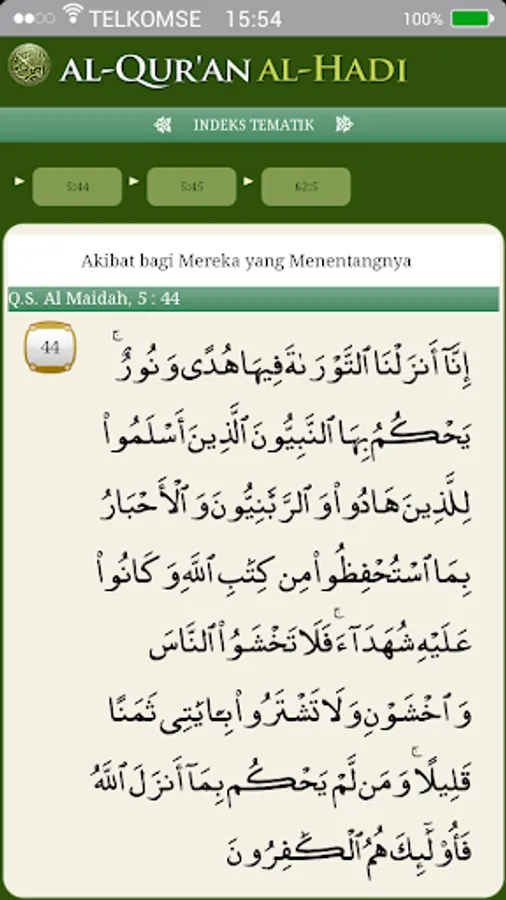 TELKOMSE 15:54 100%
AL-QUR'AN AL-HADI
INDEKS TEMATIK
5:44 5:45 62:5
Akibat bagi Mereka yang Menentangnya
Q.S. Al Maidah, 5 : 44
44
إِنَّآ أَنزَلْنَا ٱلتَّوْرَىٰةَ فِيهَا هُدًى وَنُورٌ ۚ
يَحْكُمُ بِهَا ٱلنَّبِيُّونَ ٱلَّذِينَ أَسْلَمُوا۟
لِلَّذِينَ هَادُوا۟ وَٱلرَّبَّٰنِيُّونَ وَٱلْأَحْبَارُ
بِمَا ٱسْتُحْفِظُوا۟ مِن كِتَٰبِ ٱللَّهِ وَكَانُوا۟
عَلَيْهِ شُهَدَآءَ ۚ فَلَا تَخْشَوُا۟ ٱلنَّاسَ
وَٱخْشَوْنِ وَلَا تَشْتَرُوا۟ بِـَٔايَٰتِى ثَمَنًا
قَلِيلًا ۚ وَمَن لَّمْ يَحْكُم بِمَآ أَنزَلَ ٱللَّهُ
فَأُو۟لَٰٓئِكَ هُمُ ٱلْكَٰفِرُونَ